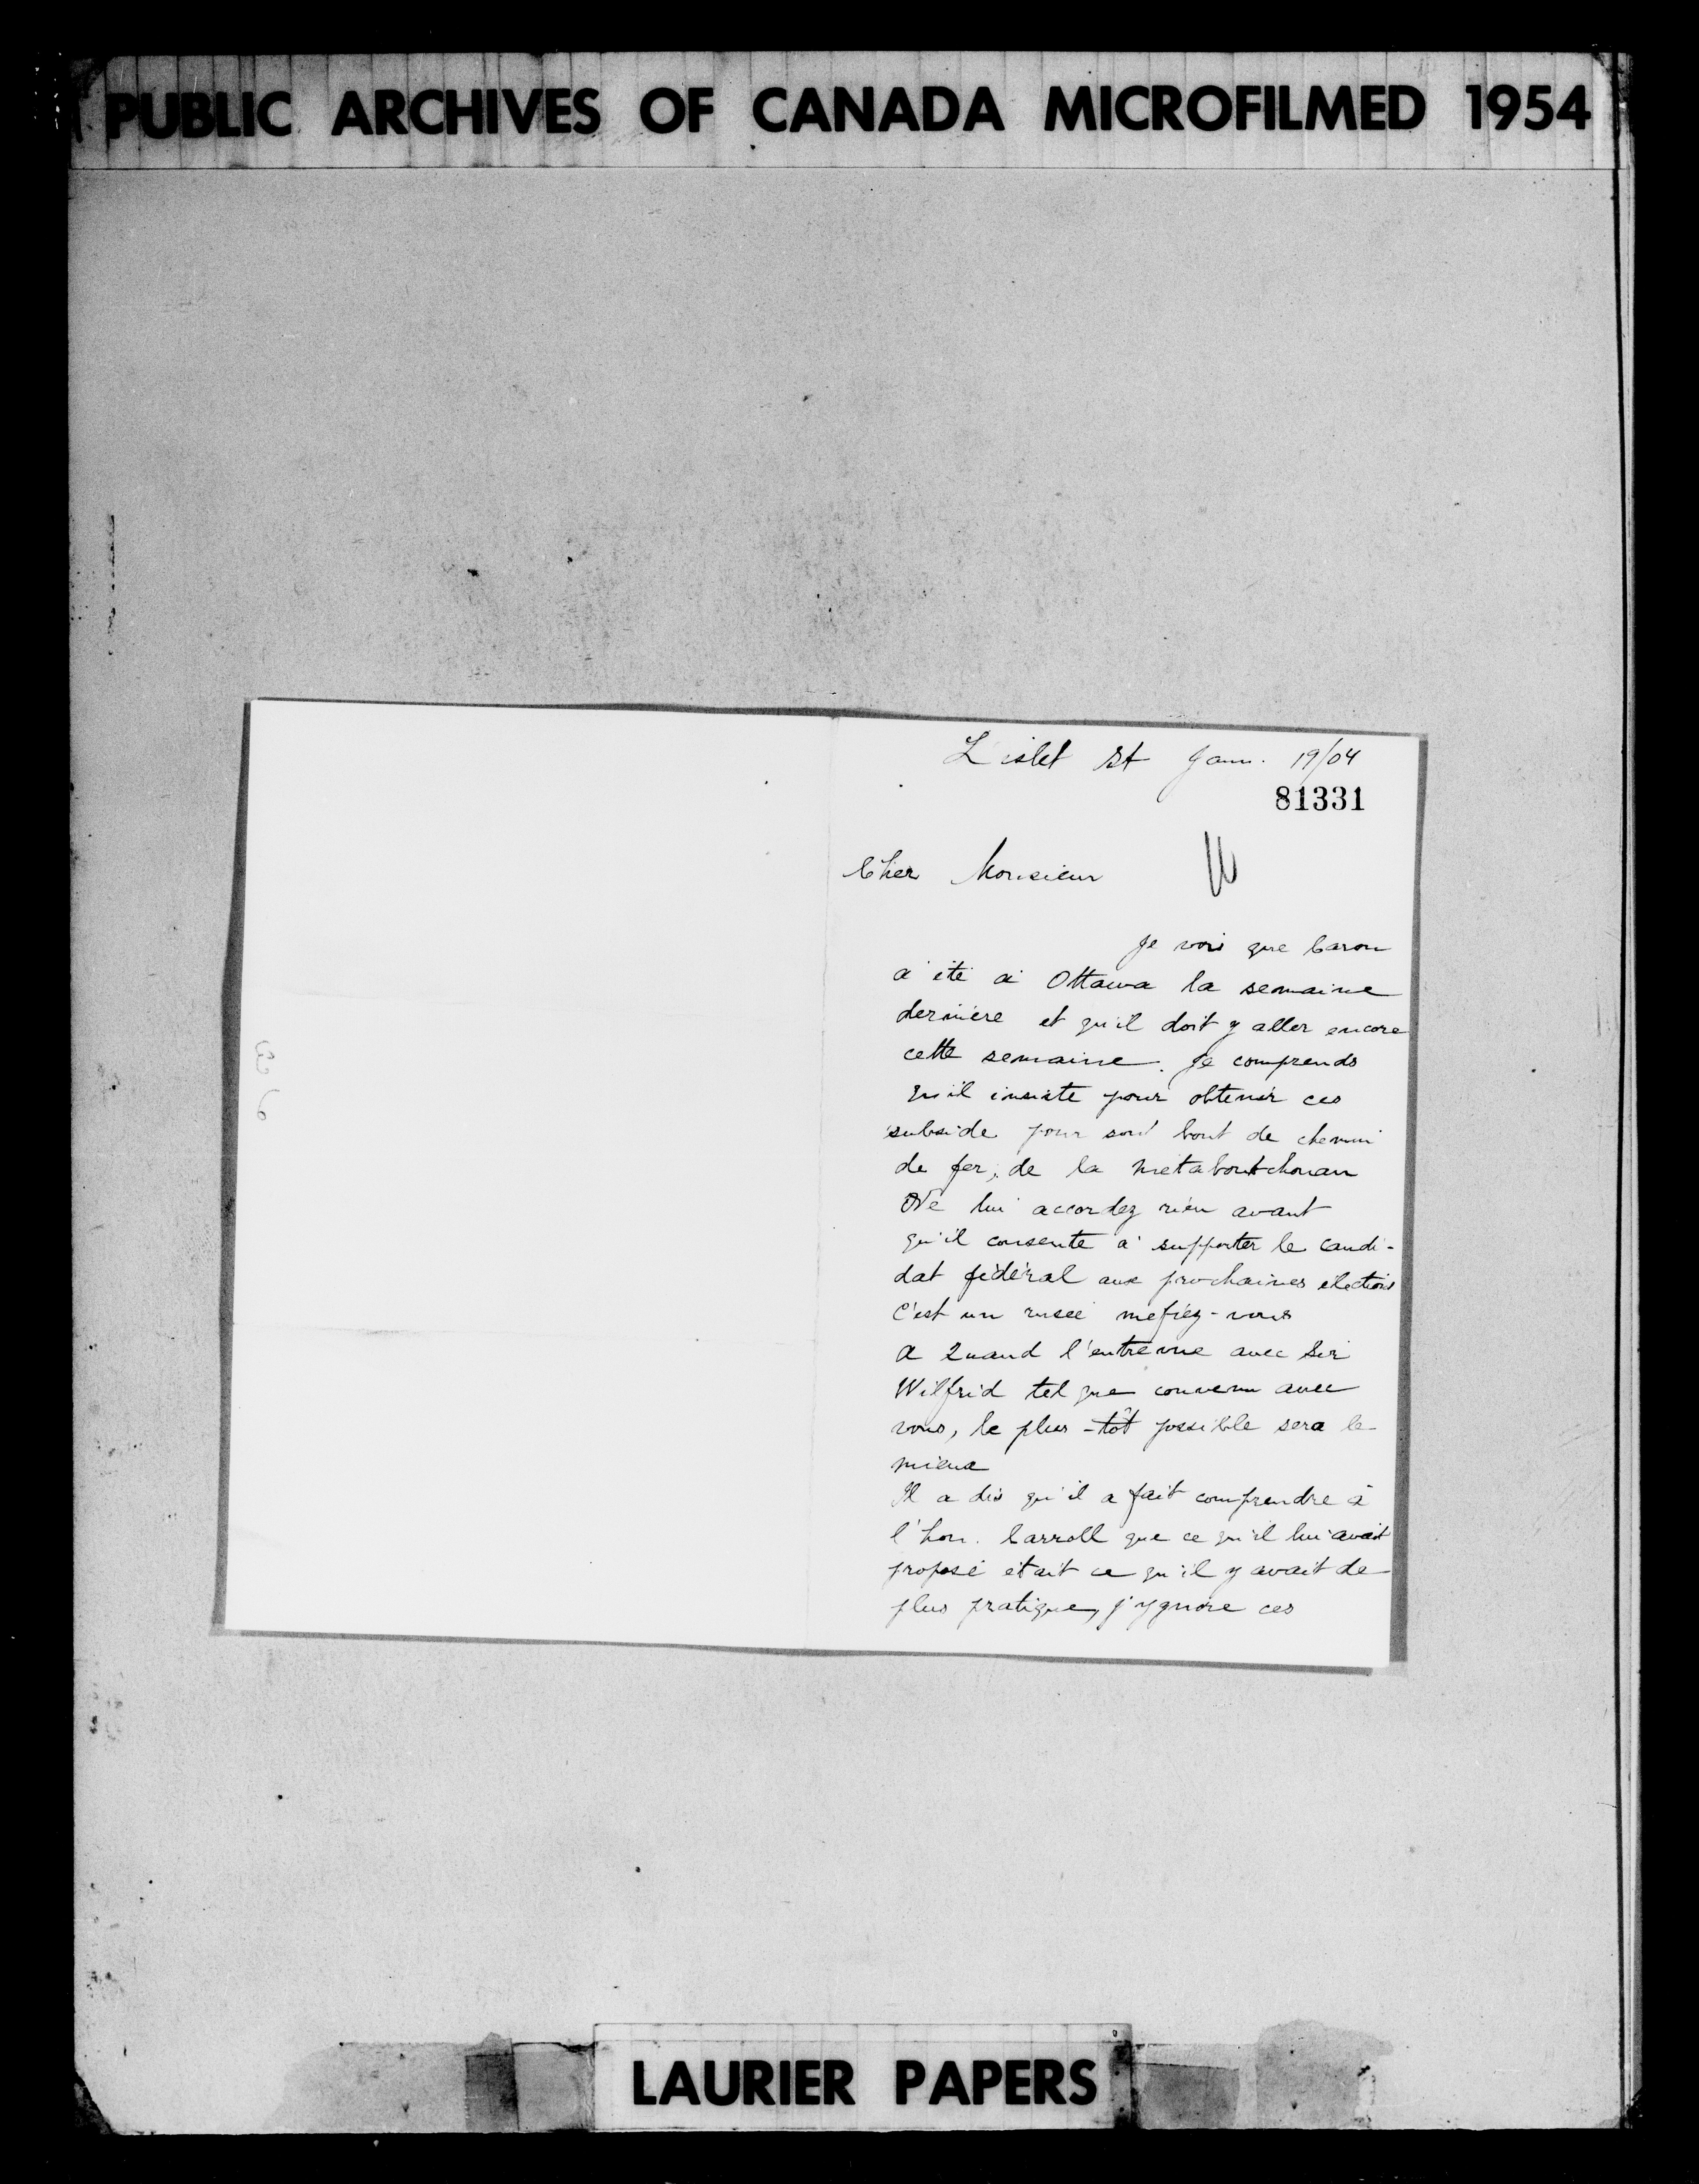 PUBLIC ARCHIVES OF CANADA MICROFILMED 1954
L'islet St Janv. 19/04
81331
Cher Monsieur
Je vois que Caron
a été à Ottawa la semaine
dernière et qu'il doit y aller encore
cette semaine. Je comprends
qu'il insiste pour obtenir ces
subside pour son bout de chemin
de fer, de la Metaboutchouan
Ne lui accordez rien avant
qu'il consente a supporter le candi-
dat fédéral aux prochaines élections
C'est un rusée mefiez-vous
A quand l'entrevue avec Sir
Wilfrid tel que convenu avec
vous, le plus-tôt possible sera le
mieux
Il a dis qu'il a fait comprendre à
l'hon. Carroll que ce qu'il lui avait
proposé était ce qu'il y avait de
plus pratique, j'ygnore ces
LAURIER PAPERS